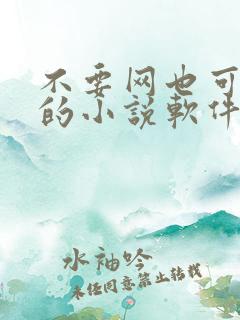 不要网也可
的小説軟件
水袖吟
未经同意禁止转载